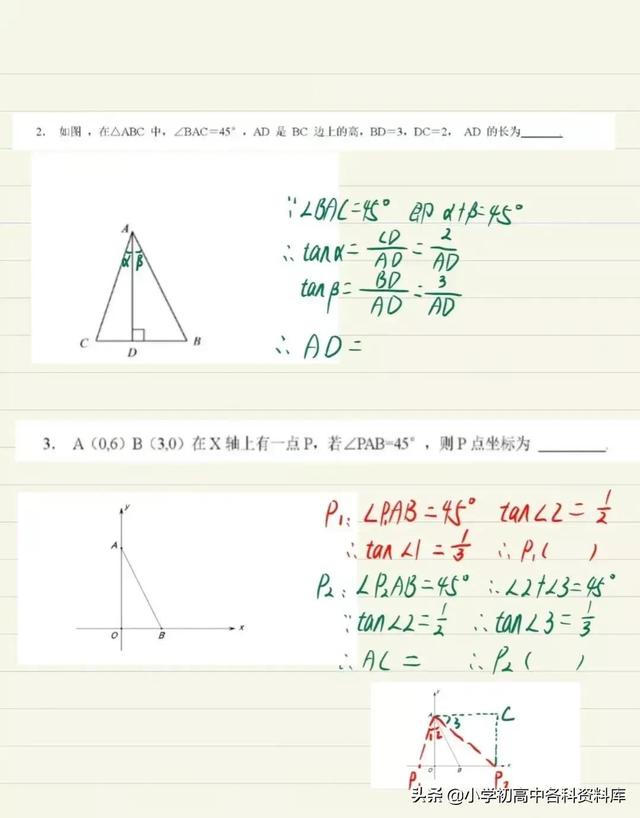 2. 如图，在△ABC 中，∠BAC=45°，AD 是 BC 边上的高，BD=3，DC=2， AD 的长为______
∵∠BAC=45° 即 α+β=45°
∴tanα=CD/AD=2/AD
tanβ=BD/AD=3/AD
∴AD=
A
α β
C D B
3. A（0,6）B（3,0）在X轴上有一点P，若∠PAB=45°，则P点坐标为 ______
P₁: ∠P₁AB=45° tan∠2=1/2
∴tan∠1=1/3 ∴P₁( )
P₂: ∠P₂AB=45° ∴∠2+∠3=45°
∵tan∠2=1/2 ∴tan∠3=1/3
∴AC= ∴P₂( )
y
A
O B x
y
A C
1 2 3
P₁ O B P₂
头条 @小学初高中各科资料库